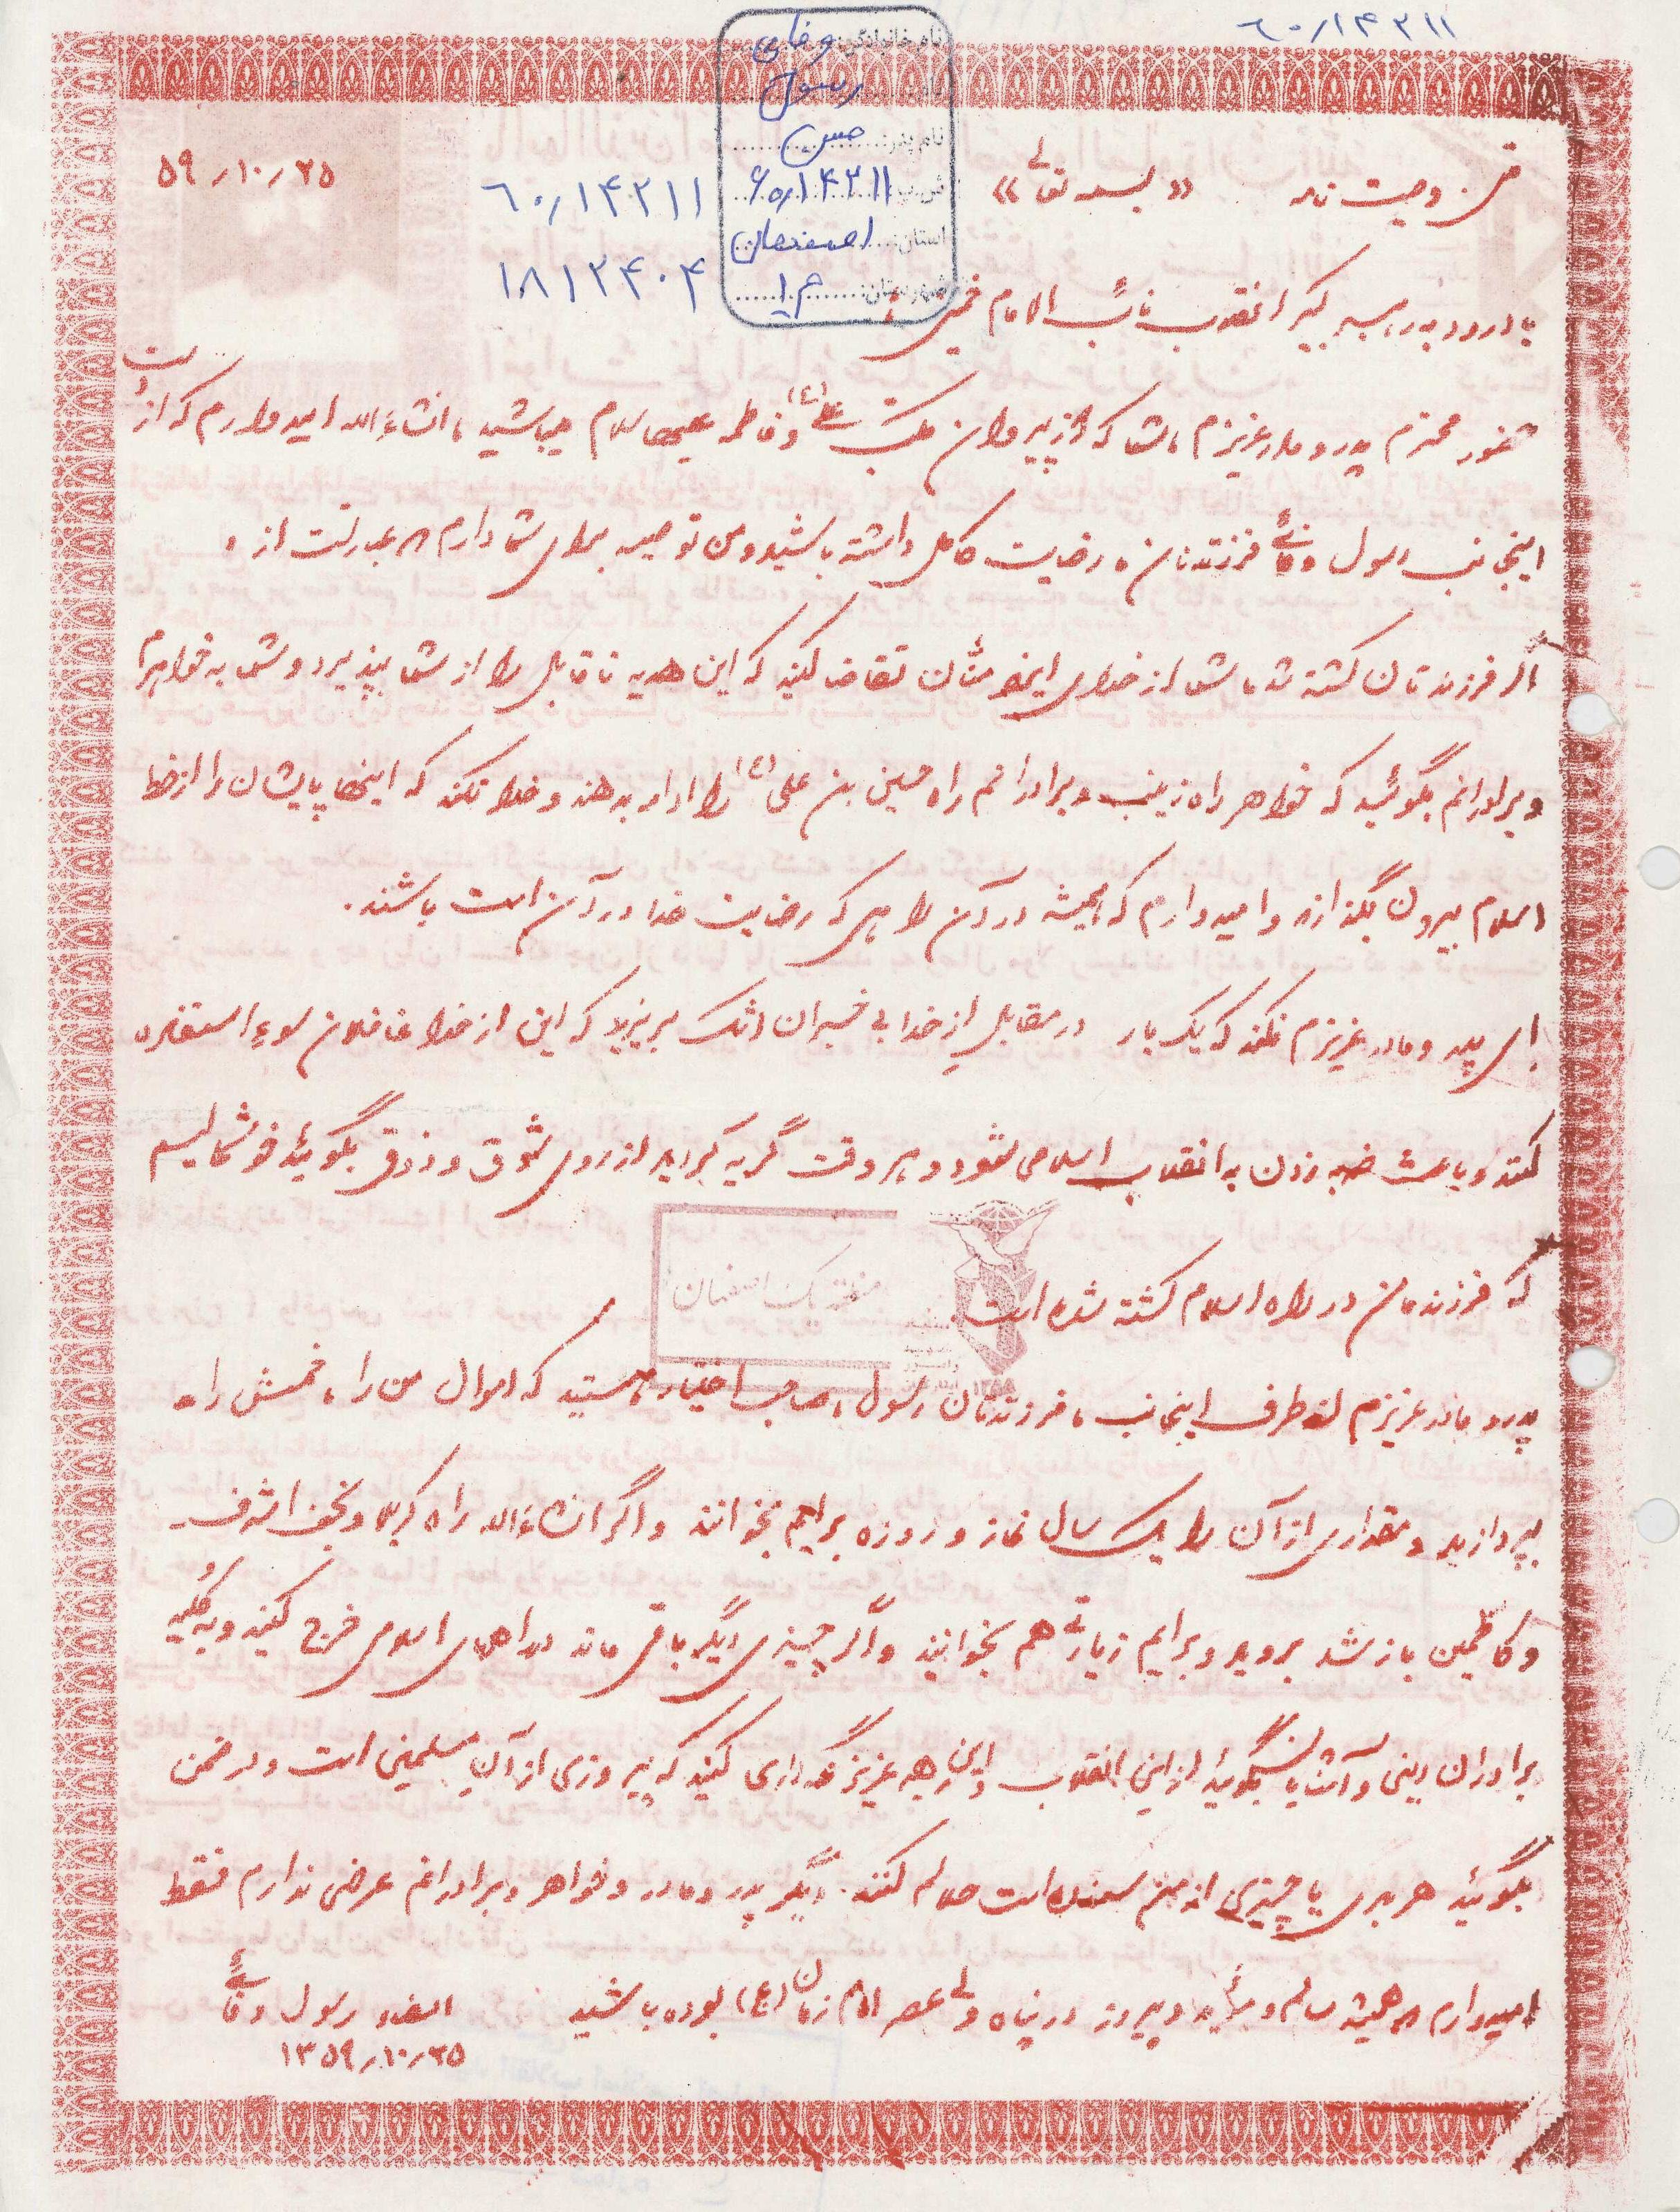 ۶۰٫۱۴۲۱۱
نام خانوادگی: وفایی
رسول
نام پدر: حسن
۶۰٫۱۴۲۱۱
استان: اصفهان
شهرستان:
۵۹٫۱۰٫۲۵
۶۰٫۱۴۲۱۱
۱۸۱۲۴۰۴
متن وصیت نامه «بسمه تعالی»
با درود به رهبر کبیر انقلاب نائب الامام خمینی
حضور محترم پدر و مادر عزیزم، شما که از پیروان مکتب علی (ع) و فاطمه علیها سلام میباشید، انشاءالله امیدوارم که از دست
اینجانب رسول وفائی فرزندتان، رضایت کامل داشته باشید و من توصیه برای شما دارم که عبارتست از،
اگر فرزندتان کشته شد، شما از خدای ایزد منان تقاضا کنید که این هدیه ناقابل را از شما بپذیرد و شما به خواهرم
و برادرانم بگوئید که خواهر راه زینب و برادرانم راه حسین بن علی (ع) را ادامه بدهند و خدا نکند که اینها پایشان را از خط
اسلام بیرون بگذارند و امیدوارم که همیشه در آن راهی که رضایت خدا در آن است باشند.
ای پدر و مادر عزیزم نکند که یک بار در مقابل از خدا بی خبران اشک بریزید که این از خدا غافلان سوء استفاده
کنند و باعث ضربه زدن به انقلاب اسلامی شود و هر وقت گریه کردید از روی شوق و ذوق بگوئید خوشحالیم
که فرزندمان در راه اسلام کشته شده است.
منطقه یک اصفهان
پدر و مادر عزیزم از طرف اینجانب، فرزندتان رسول، صاحب اختیار هستید که اموال من را، خمسش را
بپردازید و مقداری از آن را یک سال نماز و روزه برایم بخوانند و اگر انشاءالله راه کربلا و نجف اشرف
و کاظمین باز شد بروید و برایم زیارتی هم بخوانید و اگر چیزی دیگر باقی ماند در راههای اسلامی خرج کنید و به کلیه
برادران دینی و آشنایان بگوئید از این انقلاب و این رهبر عزیز نگهداری کنید که پیروزی از آن مسلمین است و در ضمن
بگوئید هر بدی یا چیزی از من سر زده است حلالم کنند. دیگر پدر و مادر و خواهر و برادرانم عرضی ندارم فقط
امیدوارم که همیشه سالم و و پیروز در پناه ولی عصر امام زمان (عج) بوده باشید
رسول وفائی
۱۳۵۹٫۱۰٫۲۵